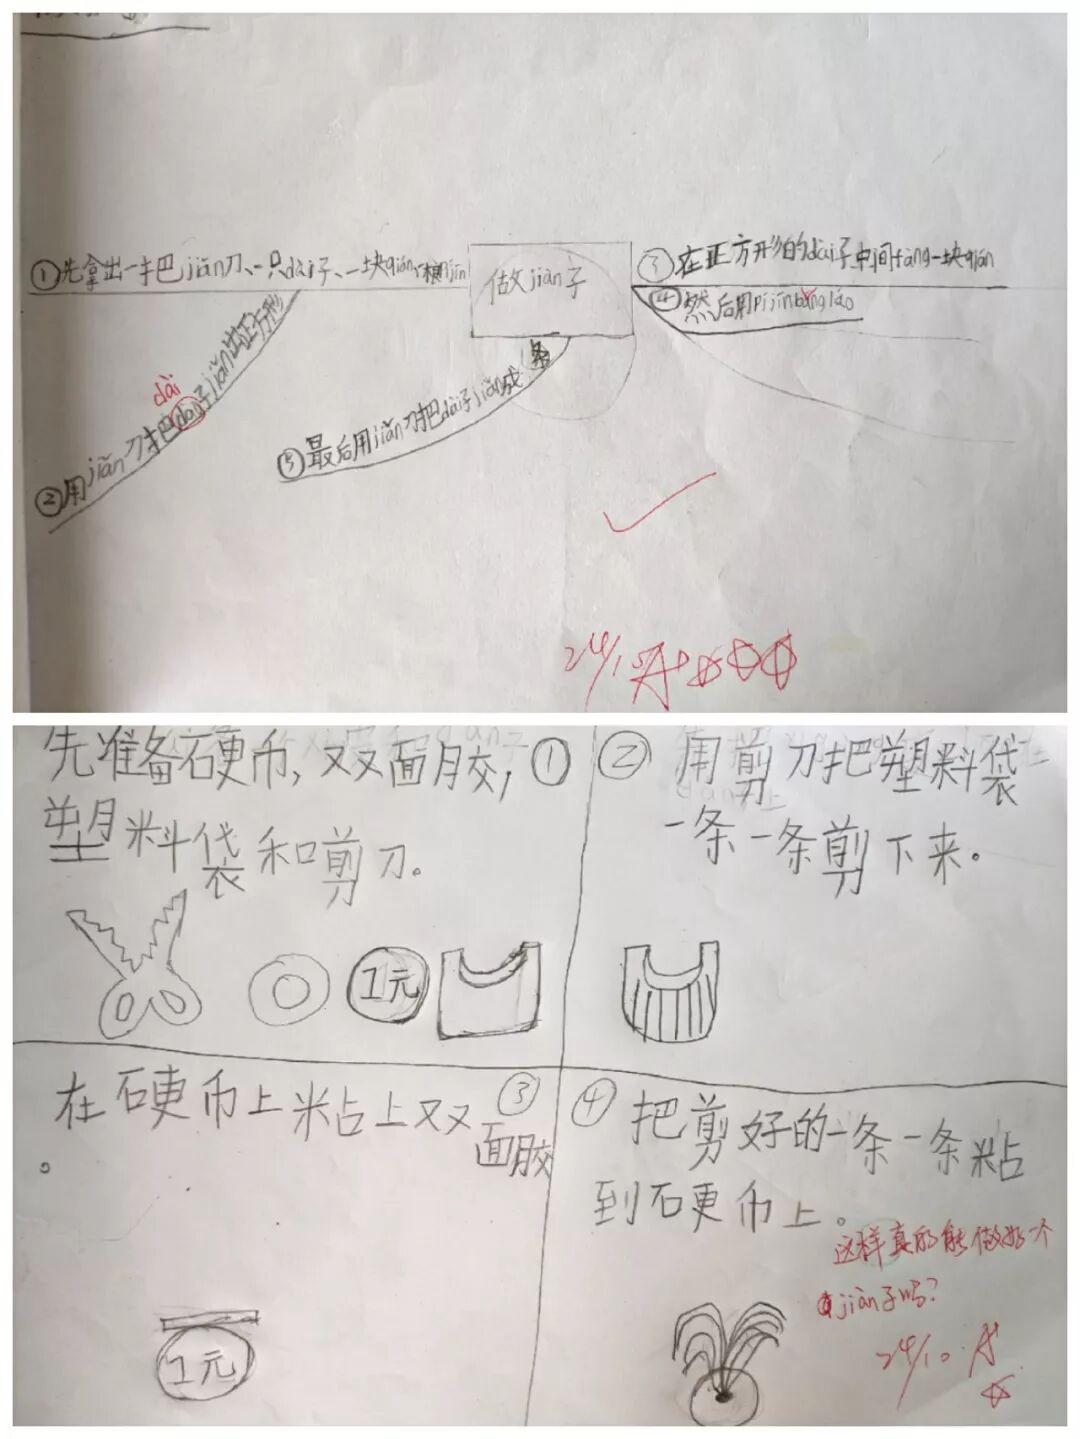 ①先拿出一把jiǎn刀、一只dài子、一块qián、一根jīn
做jiàn子
③在正方形的dài子中间fàng一块qián
④然后用pí jīn bǎng láo
dài
②用jiǎn刀把dài子jiǎn出正方形
⑤最后用jiǎn刀把dài子jiǎn成条
24/10 A+
先准备硬币,双面胶,①
塑料袋和剪刀。
1元
②用剪刀把塑料袋
一条一条剪下来。
在硬币上粘上双③
面胶
。
1元
④把剪好的一条一条粘
到硬币上。
这样真的能做好一个
jiàn子吗?
24/10 A+